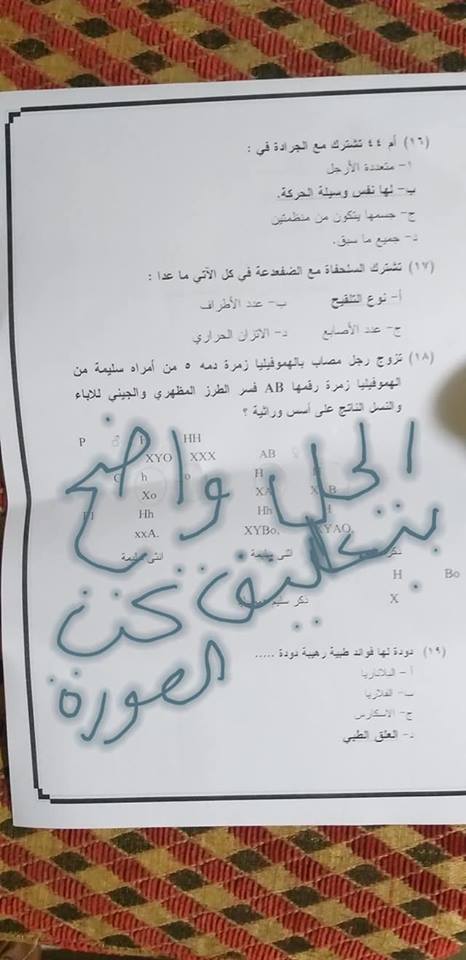 (١٦) أم ٤٤ تشترك مع الجرادة في :
أ- متعددة الأرجل
ب- لها نفس وسيلة الحركة.
ج- جسمها يتكون من منظمتين
د- جميع ما سبق.
(١٧) تشترك السلحفاة مع الضفدعة في كل الآتي ما عدا :
أ- نوع التلقيح ب- عدد الأطراف
ج- عدد الأصابع د- الاتزان الحراري
(١٨) تزوج رجل مصاب بالهموفيليا زمرة دمه o من أمراه سليمة من
الهموفيليا زمرة رقمها AB فسر الطرز المظهري والجيني للاباء
والنسل الناتج على أسس وراثية ؟
P HH
XYO XXX AB
h o H
Xo
Hh Hh
xxA. XYBo.
انثى سليمة انثى سليمة
H Bo
X
ذكر سليم
الحل واضح
بتعاليق كن
الصورة
(١٩) دودة لها فوائد طبية رهيبة دودة .....
أ - البلاناريا
ب- الفلاريا
ج- الاسكارس
د- العلق الطبي